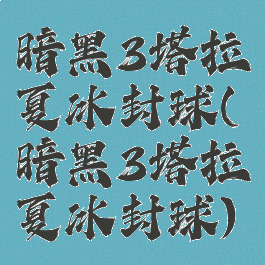 暗黑3塔拉
夏冰封球(
暗黑3塔拉
夏冰封球)